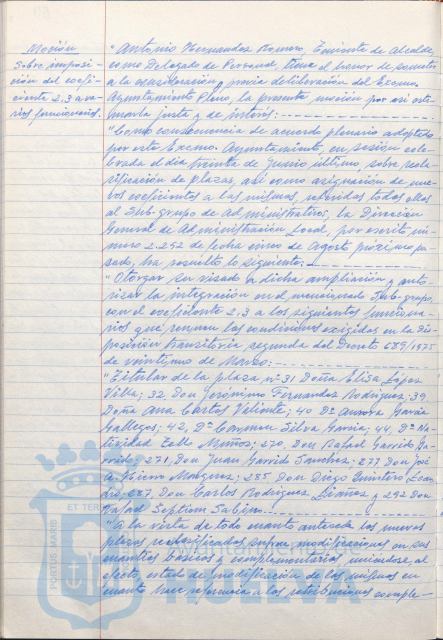 Moción
Sobre imposi-
ción del coefi-
ciente 2,3 a va-
rios funcionarios.
"Antonio Hernandez Romero, Teniente de Alcalde,
como Delegado de Personal, tiene el honor de someter
a la consideración y previa deliberación del Excmo.
Ayuntamiento Pleno, la presente moción por así esti-
marla justa y de interés:
"Como consecuencia de acuerdo plenario adoptado
por este Excmo. Ayuntamiento, en sesión cele-
brada el día treinta de Junio último, sobre recla-
sificación de plazas, así como asignación de nue-
vos coeficientes a las mismas, referidos todos ellos
al Sub-grupo de Administrativos, la Dirección
General de Administración Local, por escrito nú-
mero 2.252 de fecha cinco de Agosto próximo pa-
sado, ha resuelto lo siguiente:
"Otorgar su visado a dicha ampliación y auto-
rizar la integración en el mencionado Sub-grupo,
con el coeficiente 2,3 a los siguientes funciona-
rios que reunen las condiciones exigidas en la Dis-
posición transitoria segunda del Decreto 689/1975
de veintiuno de Marzo:
"Titular de la plaza nº 31 Doña Elisa López
Villa; 32, Don Jerónimo Fernandez Rodriguez; 39,
Doña Ana Cartos Veliente; 40 Dª Aurora García
Gallegos; 42, Dª Carmen Silva García; 44, Dª Na-
tividad Muñoz; 270, Don Rafael Garrido Ga-
rrido; 271, Don Juan Garrido Sanchez; 277 Don José
A. Marquez; 285, Don Diego Quintero Lean-
dro; 287, Don Carlos Rodriguez Linares y 292 Don
Rafael Septiem Sabino.
"A la vista de todo cuanto antecede las nuevas
plazas reclasificadas sufren modificaciones en sus
cuantías básicas y complementarias, uniéndose, al
efecto, estado de modificación de las mismas en
cuanto hace referencia a las retribuciones comple-
PORTUS MARIS
ET TER
Ayuntamiento de
HUELVA